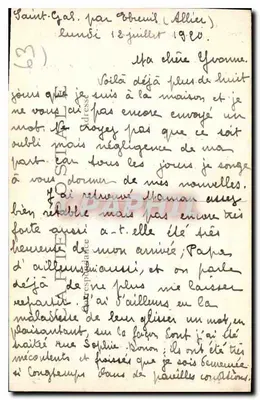 Saint-Gal. par Ebreuil (Allier)
lundi 12 juillet 1920.
(63)
Ma chère Yvonne.
Voilà déjà plus de huit
jours que je suis à la maison et je
ne vous ai pas encore envoyé un
mot. Ne croyez pas que ce soit
oubli mais négligence de ma
part car tous les jours je songe
à vous donner de mes nouvelles.
J'ai retrouvé Maman assez
bien rétablie mais pas encore très
forte aussi a-t-elle été très
heureuse de mon arrivée; Papa
d'ailleurs aussi, et on parle
déjà de ne plus me laisser
repartir. J'ai d'ailleurs eu la
maladresse de leur glisser un mot, en
plaisantant, sur la façon dont j'ai été
traité rue Sophie ils ont été très
mécontents et froissés que je sois demeurée
si longtemps dans de pareilles conditions.
CARTE POSTALE
Correspondance
Adresse